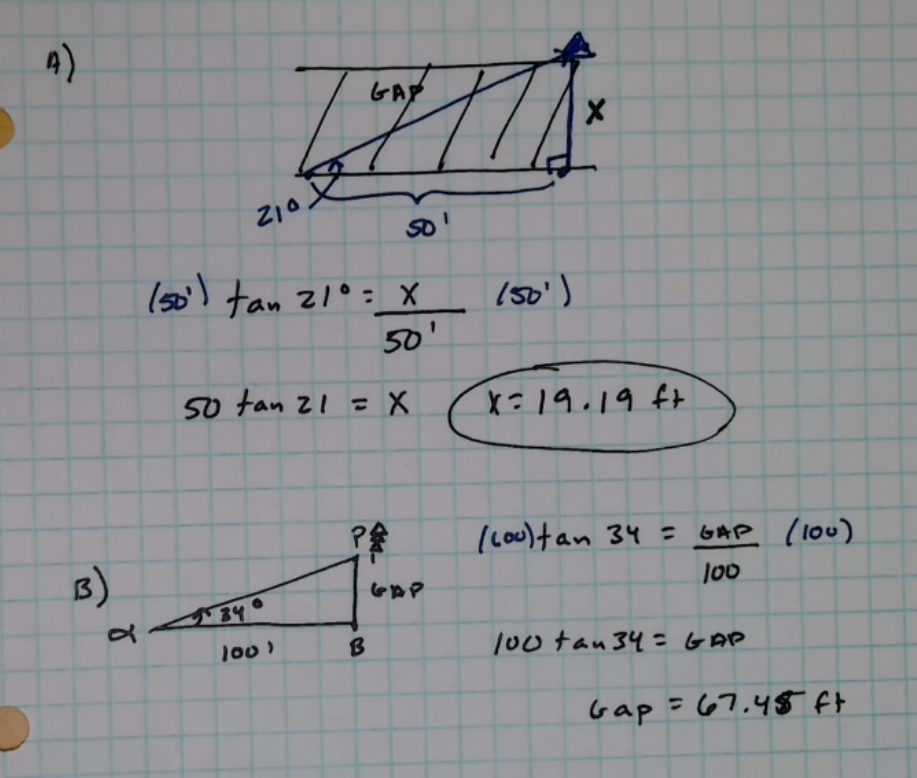 A)
GAP
X
21°
50'
(50') tan 21° = X (50')
50'
50 tan 21 = X X = 19.19 ft
P
(100) tan 34 = GAP (100)
100
B)
GAP
34°
α
100'
B
100 tan 34 = GAP
Gap = 67.45 ft